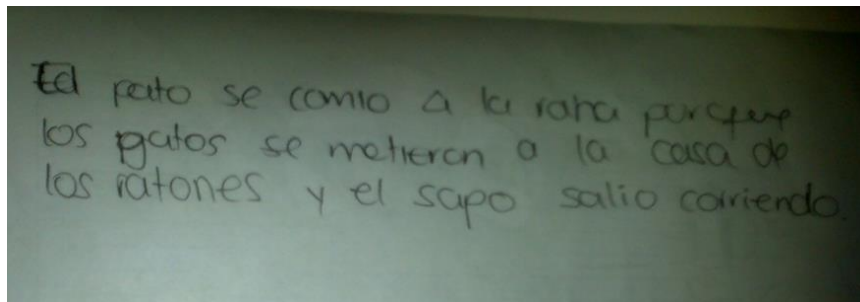 El pato se comio a la rana porque
los gatos se metieron a la casa de
los ratones y el sapo salio corriendo.